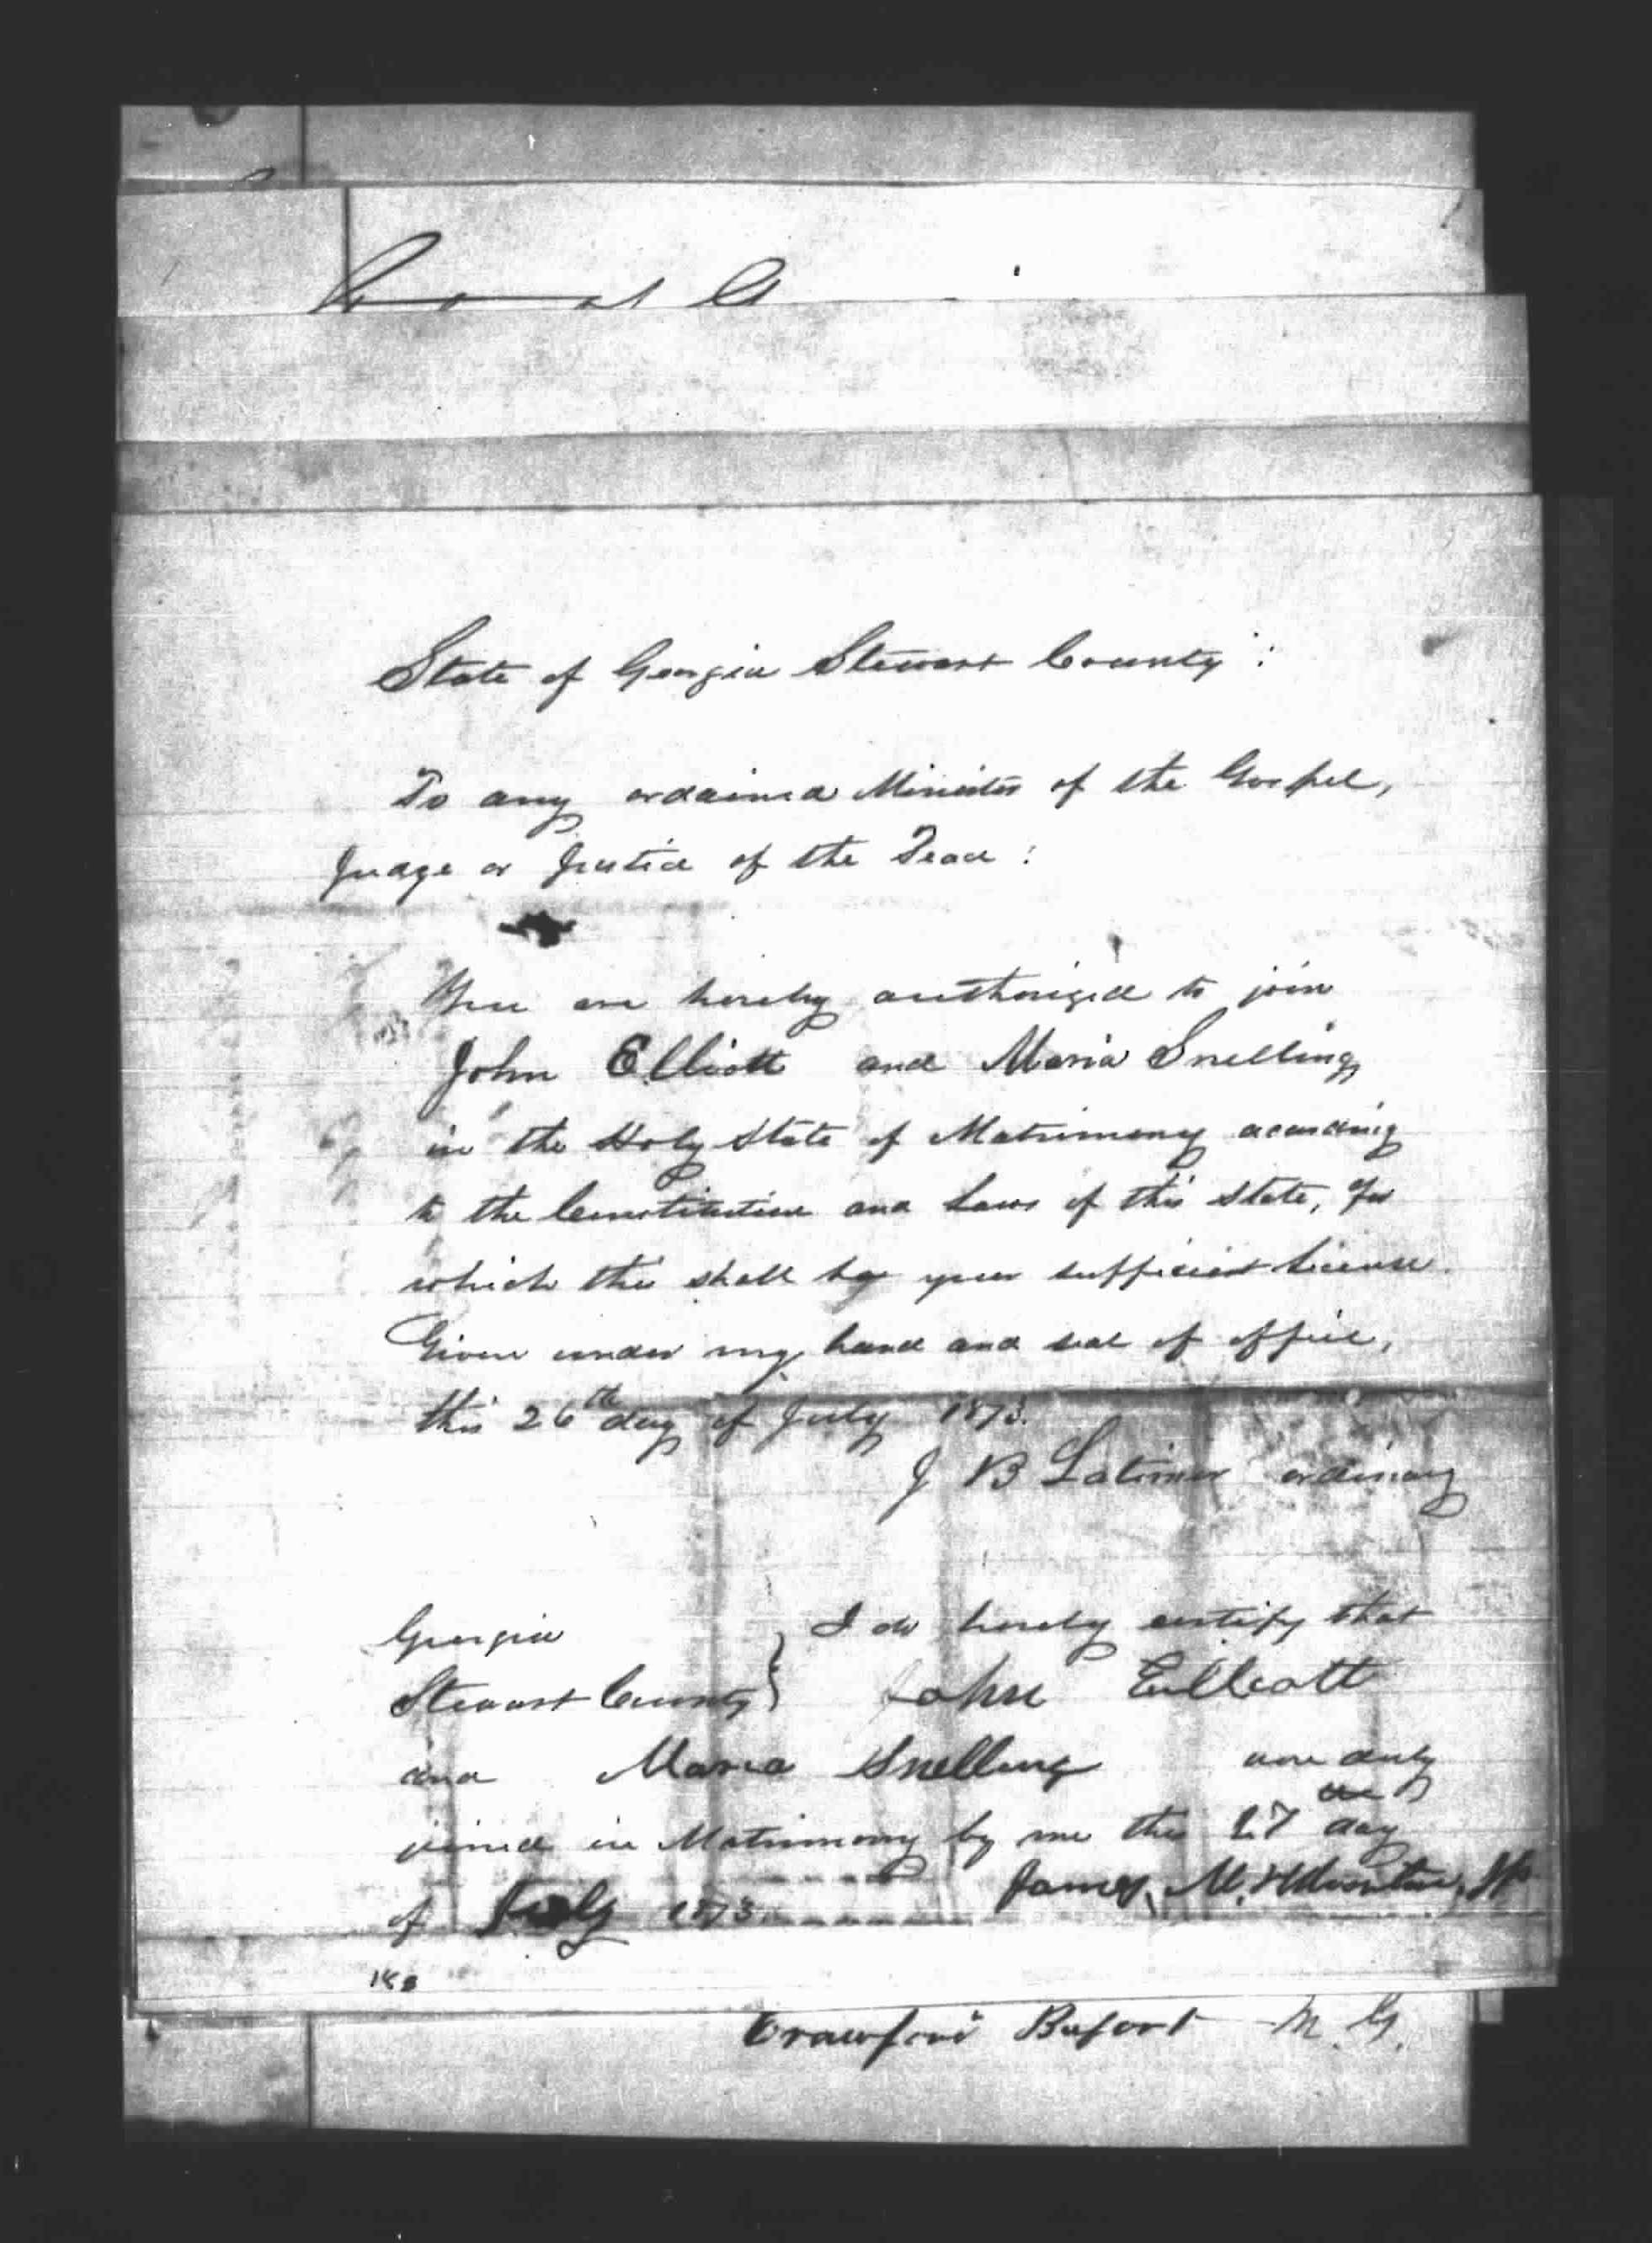 State of Georgia Stewart County :
To any ordained Minister of the Gospel,
Judge or Justice of the Peace :
You are hereby authorized to join
John Elliott and Maria Snelling
in the Holy State of Matrimony according
to the Constitution and Laws of this State, for
which this shall be your sufficient license.
Given under my hand and seal of office,
this 26th day of July 1873.
J B Latimer ordinary
Georgia } I do hereby certify that
Stewart County } John Ellicott
and Maria Snelling were duly
joined in Matrimony by me this 27 day
of July 1873. James M. JP
188
Crawford Bufort M. G.